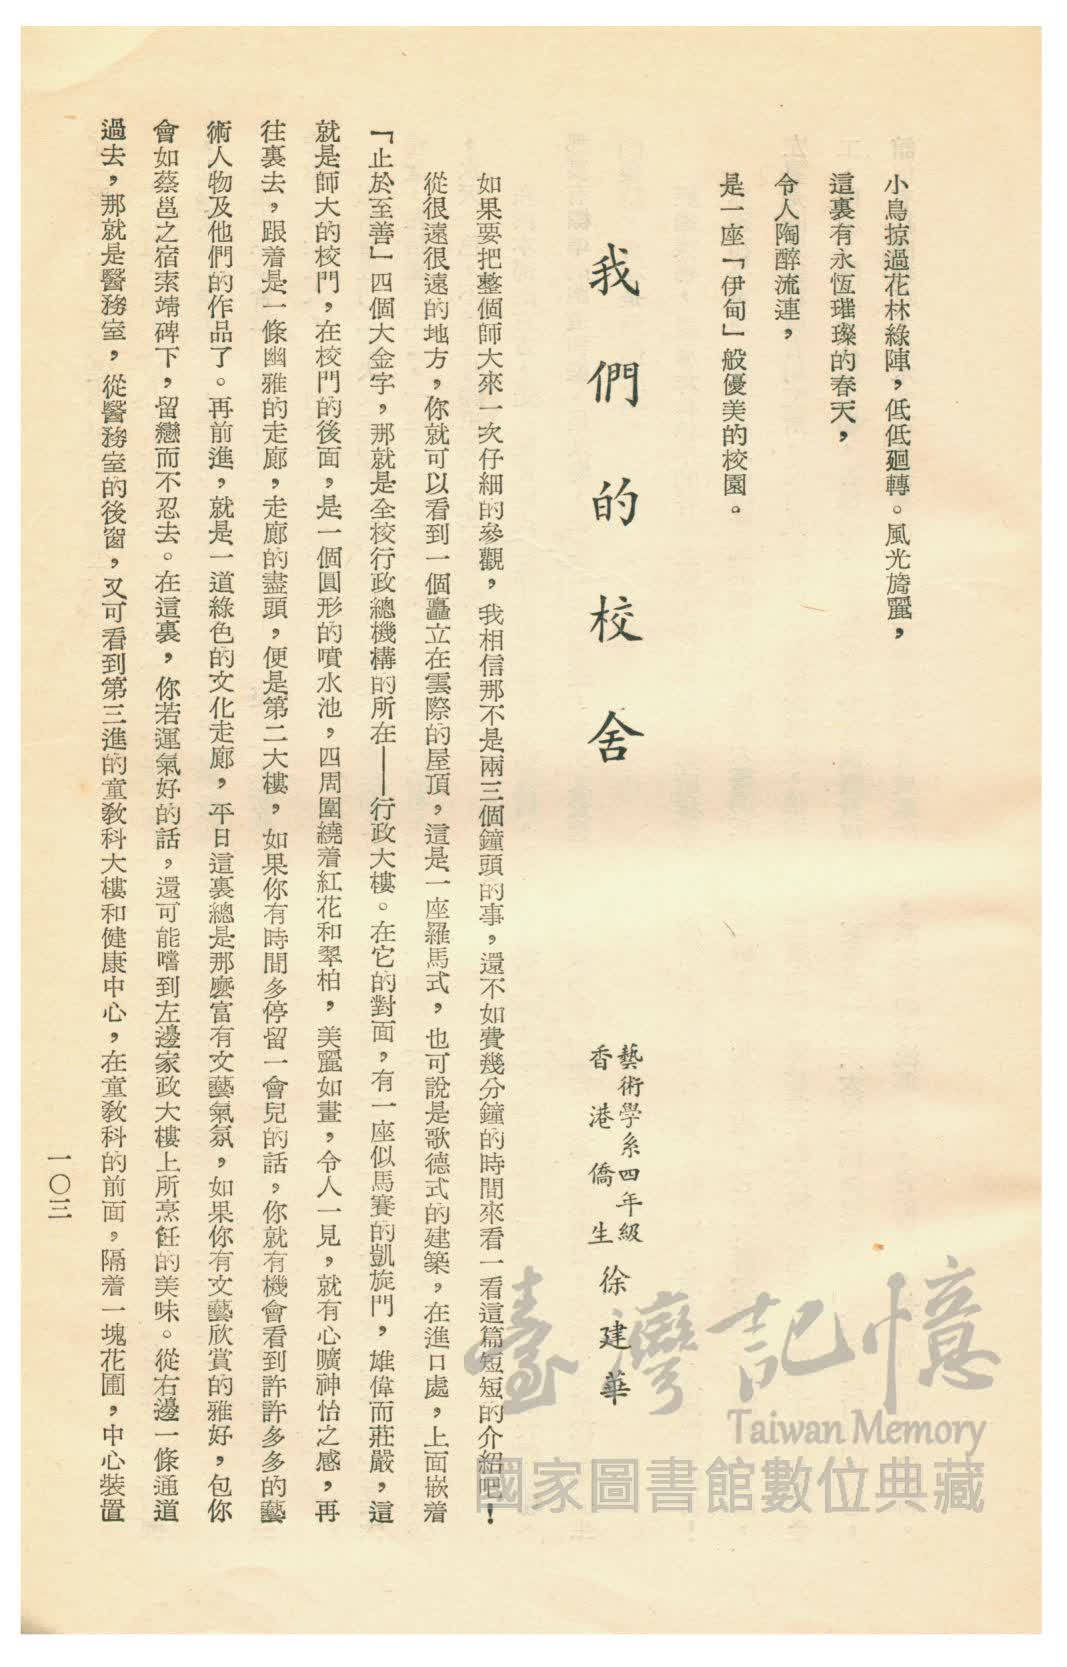 小鳥掠過花林綠陣，低低廻轉。風光旖麗，
這裏有永恆璀璨的春天，
令人陶醉流連，
是一座「伊甸」般優美的校園。
我們的校舍
藝術學系四年級
香港僑生
徐建華
如果要把整個師大來一次仔細的參觀，我相信那不是兩三個鐘頭的事，還不如費幾分鐘的時間來看一看這篇短短的介紹吧！
從很遠很遠的地方，你就可以看到一個矗立在雲際的屋頂，這是一座羅馬式，也可說是歌德式的建築，在進口處，上面嵌着
「止於至善」四個大金字，那就是全校行政總機構的所在——行政大樓。在它的對面，有一座似馬賽的凱旋門，雄偉而莊嚴，這
就是師大的校門，在校門的後面，是一個圓形的噴水池，四周圍繞着紅花和翠柏，美麗如畫，令人一見，就有心曠神怡之感，再
往裏去，跟着是一條幽雅的走廊，走廊的盡頭，便是第二大樓，如果你有時間多停留一會兒的話，你就有機會看到許許多多的藝
術人物及他們的作品了。再前進，就是一道綠色的文化走廊，平日這裏總是那麼富有文藝氣氛，如果你有文藝欣賞的雅好，包你
會如蔡邕之宿索靖碑下，留戀而不忍去。在這裏，你若運氣好的話，還可能嚐到左邊家政大樓上所烹飪的美味。從右邊一條通道
過去，那就是醫務室，從醫務室的後窗，又可看到第三進的童教科大樓和健康中心，在童教科的前面，隔着一塊花圃，中心裝置
一〇三
臺灣記憶
Taiwan Memory
國家圖書館數位典藏